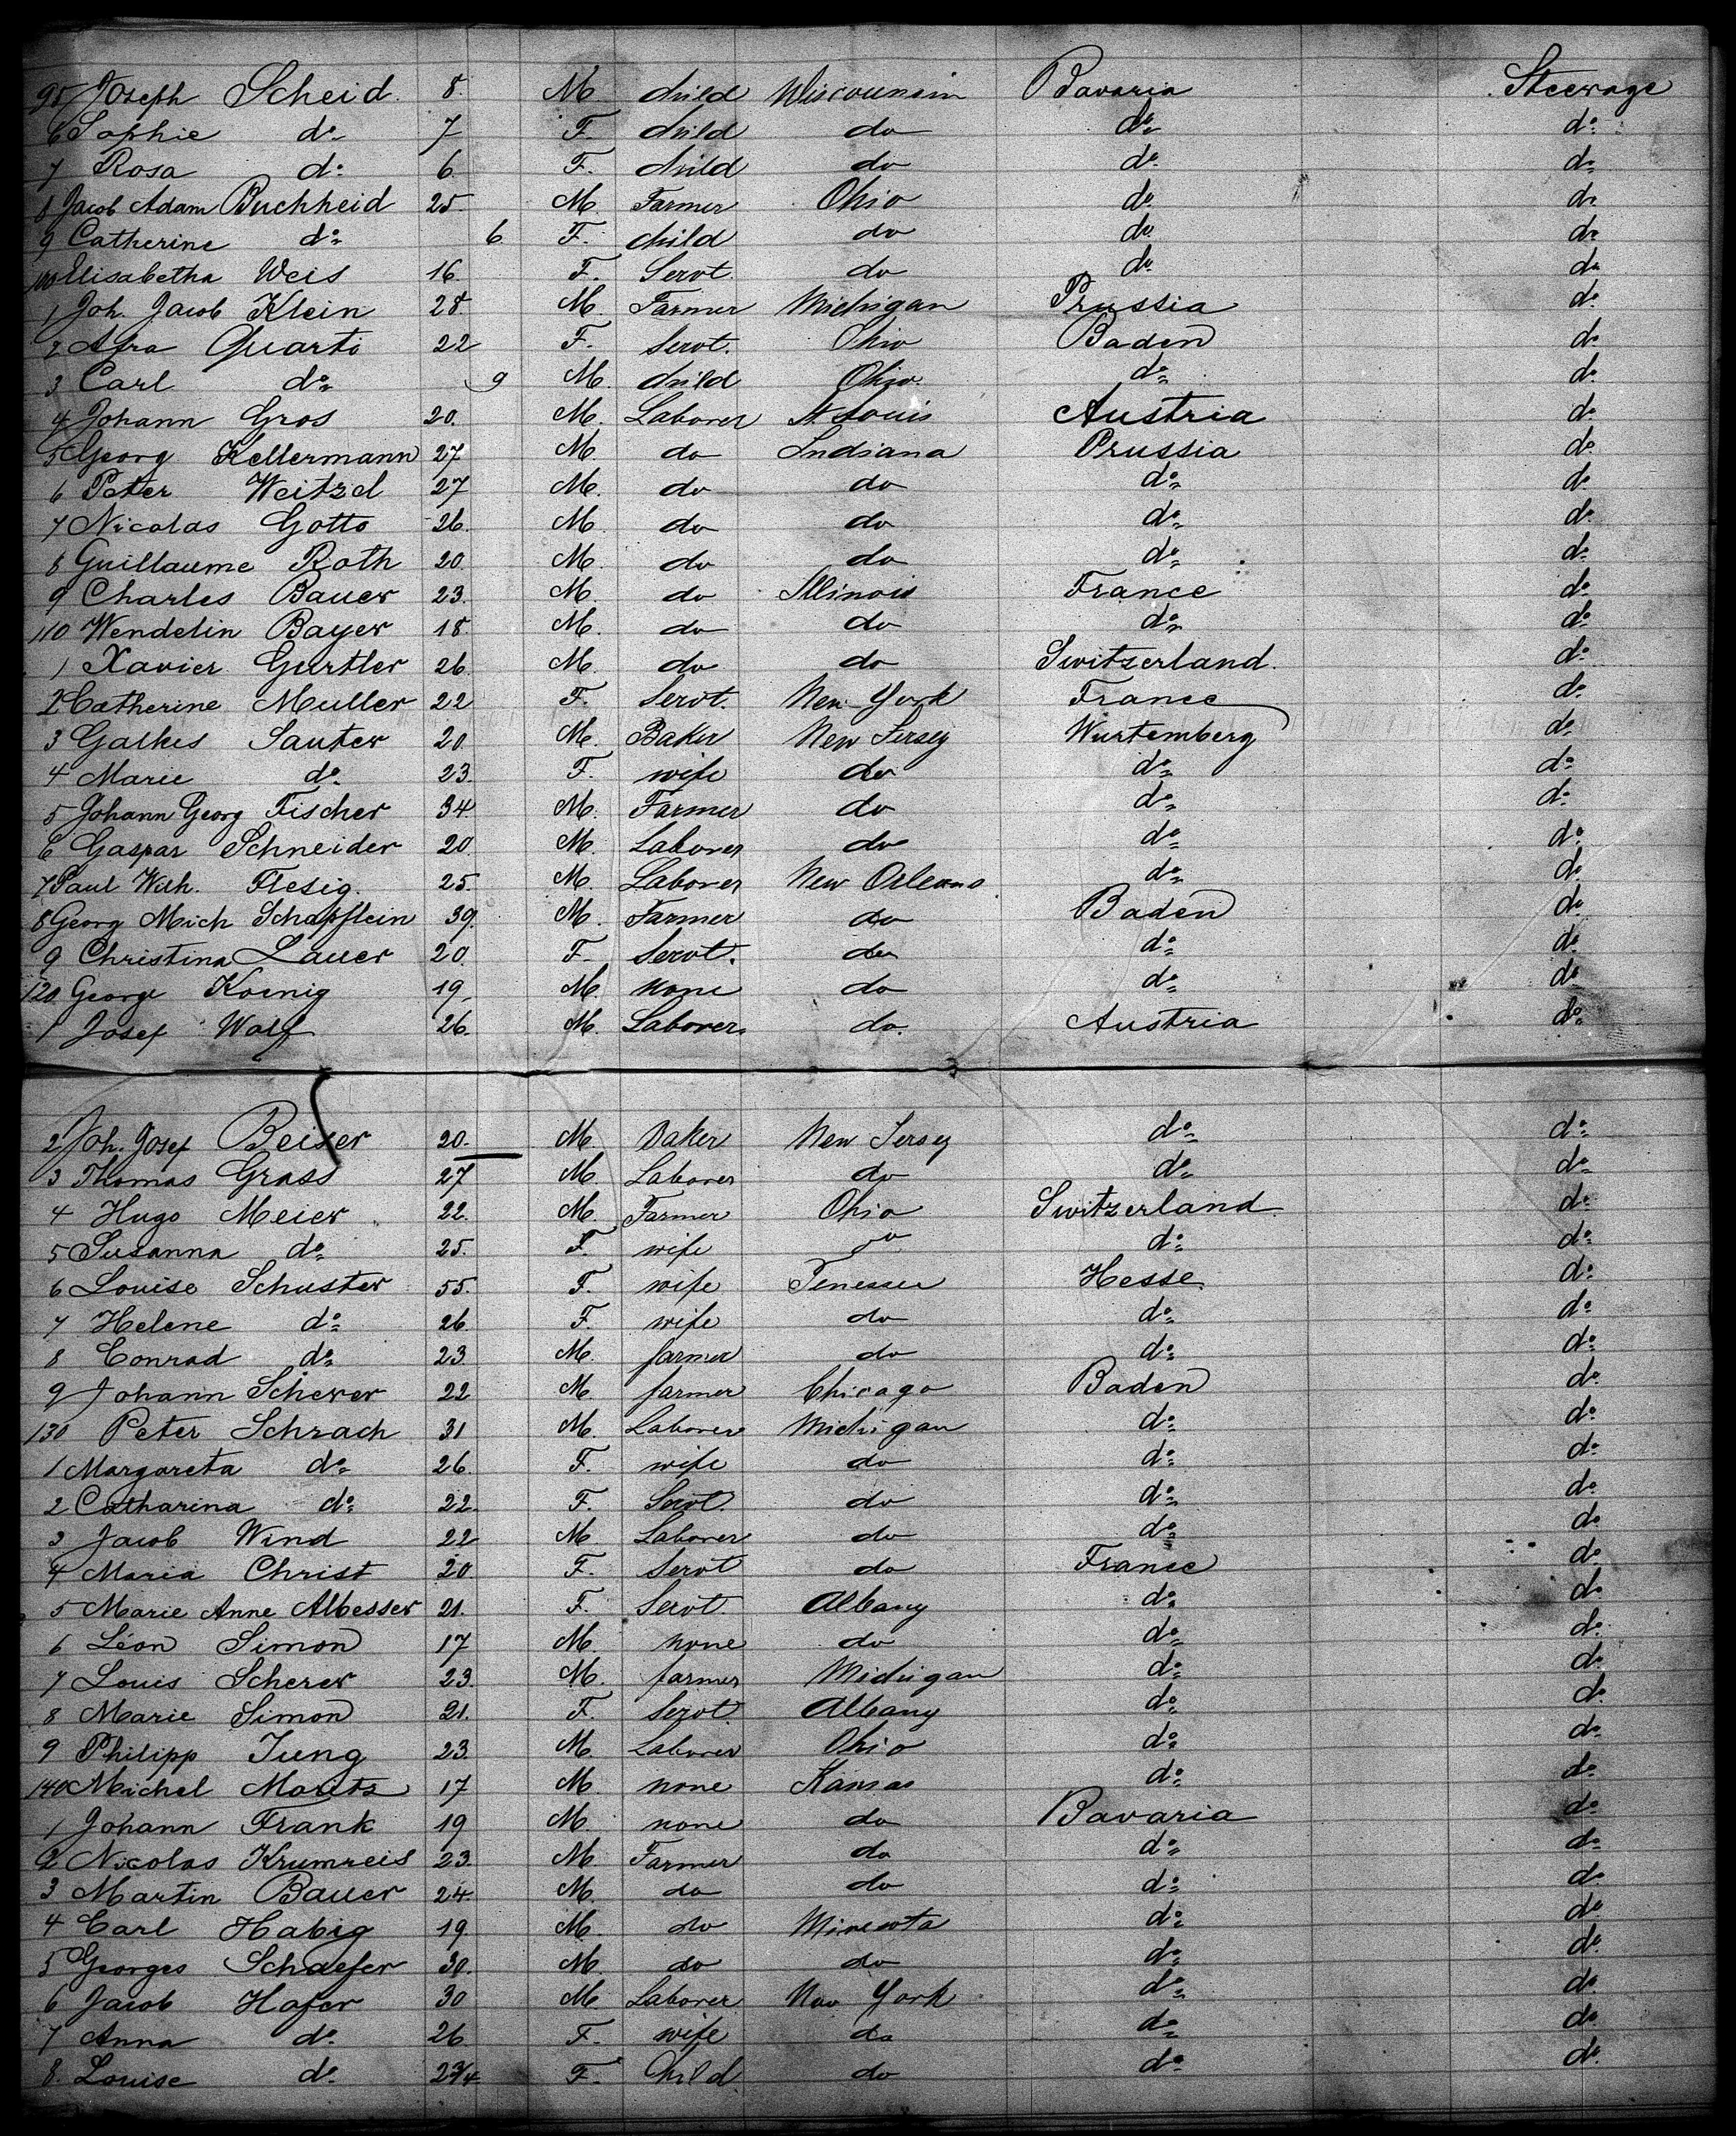 95 Joseph Scheid. 8. M. child Wisconsin Bavaria Steerage
6 Sophie do 7 F. child do do do
7 Rosa do 6. F. child do do do
8 Jacob Adam Buchheid 25. M. Farmer Ohio do do
9 Catherine do 6 F. child do do do
100 Elisabetha Weis 16. F. Servt. do do do
1 Joh. Jacob Klein 28. M. Farmer Michigan Prussia do
2 Afra Quarti 22 F. Servt. Ohio Baden do
3 Carl do 9 M. child Ohio. do do
4 Johann Gros 20. M. Laborer St. Louis Austria do
5 Georg Kellermann 27 M. do Indiana Prussia do
6 Peter Weitzel 27 M. do do do do
7 Nicolas Gotto 26. M. do do do do
8 Guillaume Roth 20. M. do do do do
9 Charles Bauer 23. M. do Illinois France do
110 Wendelin Bayer 18. M. do do do do
1 Xavier Gurtler 26. M. do do Switzerland. do
2 Catherine Muller 22 F. Servt. New York France do
3 Sauter 20. M. Baker New Jersey Wurtemberg do
4 Marie do 23. F. wife do do do
5 Johann Georg Fischer 34. M. Farmer do do do
6 Gaspar Schneider 20. M. Laborer do do do
7 Paul Wilh. Flesig. 25. M. Laborer New Orleans do do
8 Georg Mich Schapflein 39. M. Farmer do Baden do
9 Christina Lauer 20. F. Servt. do do do
120 George Koenig 19. M. none do do do
1 Josef Wolf 26. M. Laborer. do. Austria do
2 Joh. Josef Beiser 20. M. Baker New Jersey do do
3 Thomas Grass 27 M. Laborer do do do
4 Hugo Meier. 22. M. Farmer Ohio Switzerland. do
5 Susanna do 25. F. wife do do do
6 Louise Schuster 55. F. wife Tenessee Hesse. do
7 Helene do 26. F. wife do do do
8 Conrad do 23. M. farmer do do do
9 Johann Scherer 22 M. farmer Chicago Baden do
130 Peter Schrach 31 M. Laborer Michigan do do
1 Margareta do 26. F. wife do do do
2 Catharina do 22. F. Servt. do do do
3 Jacob Wind 22 M. Laborer do do do
4 Maria Christ 20. F. Servt do France do
5 Marie Anne Albesser 21. F. Servt. Albany do do
6 Léon Simon 17 M none do do do
7 Louis Scherer 23. M. farmer Michigan do do
8 Marie Simon 21. F. Servt. Albany do do
9 Philipp Jung 23. M. Laborer Ohio do do
140 Michel Moritz 17 M. none Kansas do do
1 Johann Frank 19 M. none do Bavaria do
2 Nicolas Krumreis 23. M. Farmer do do do
3 Martin Bauer 24. M. do do do do
4 Carl Habig 19. M. do Minesota do do
5 Georges Schaefer 30. M. do do do do
6 Jacob Hafer 30 M. Laborer New York do do
7 Anna do 26 F. wife do do do
8. Louise do 2 3/4 F. Child do do do